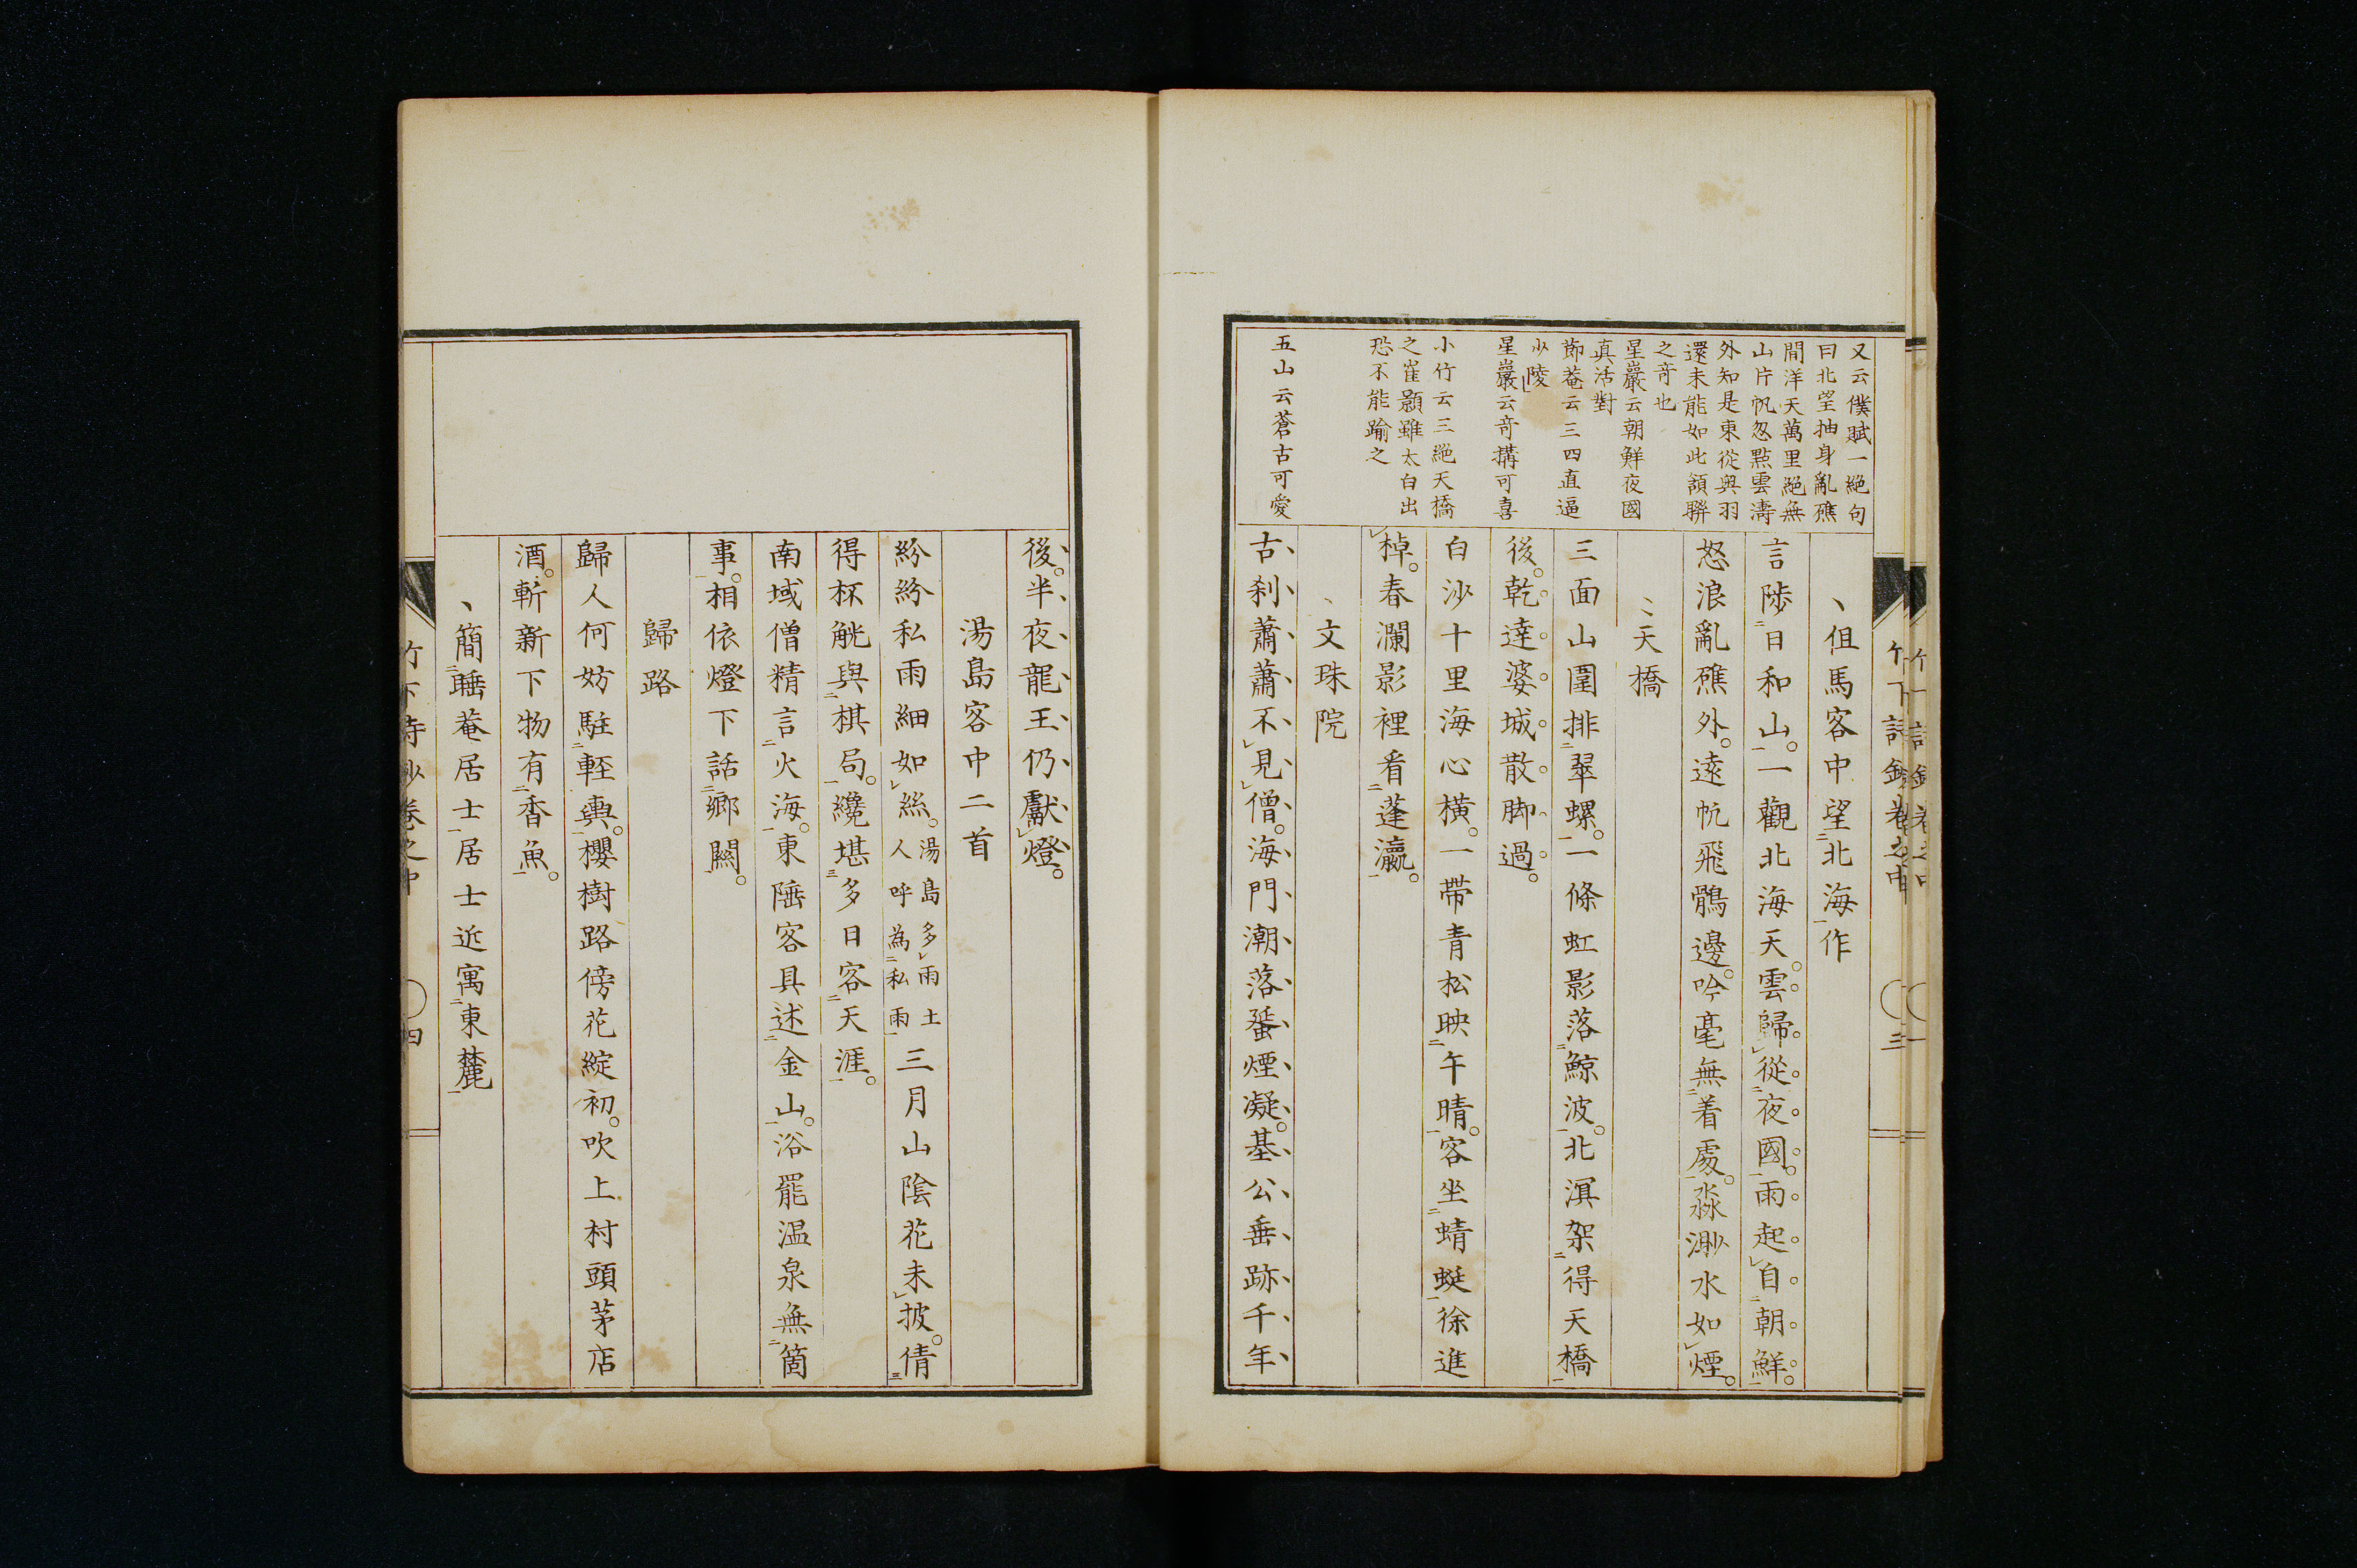 又云僕賦一絕句
曰北望抽身亂礁
間洋天萬里絕無
山片帆忽點雲濤
外知是東從與羽
還未能如此頷聯
之奇也
星巖云朝鮮夜國
真活對
節菴云三四直逼
少陵
星巖云奇搆可喜
小竹云三絕天橋
之崔顥雖太白出
恐不能踰之
五山云蒼古可愛
伹馬客中望北海作
言陟日和山一觀北海天雲歸從夜國雨起自朝鮮
怒浪亂礁外遠帆飛鶻邊吟毫無着處淼渺水如煙
天橋
三面山圍排翠螺一條虹影落鯨波北溟架得天橋
後乾達婆城散脚過
白沙十里海心橫一帶青松映午晴客坐蜻蜓徐進
棹春瀾影裡看蓬瀛
文珠院
古刹蕭蕭不見僧海門潮落蜑煙凝基公垂跡千年
竹下詩鈔卷之中
三
後半夜龍王仍獻燈
湯島客中二首
紛紛私雨細如絲湯島多雨土人呼為私雨三月山陰花未披倩
得杯觥與棋局纔堪多日客天涯
南域僧精言火海東陲客具述金山浴罷温泉無箇
事相依燈下話鄉關
歸路
歸人何妨駐輕輿櫻樹路傍花綻初吹上村頭茅店
酒斬新下物有香魚
簡睡菴居士居士近寓東麓
竹下詩鈔卷之中
四